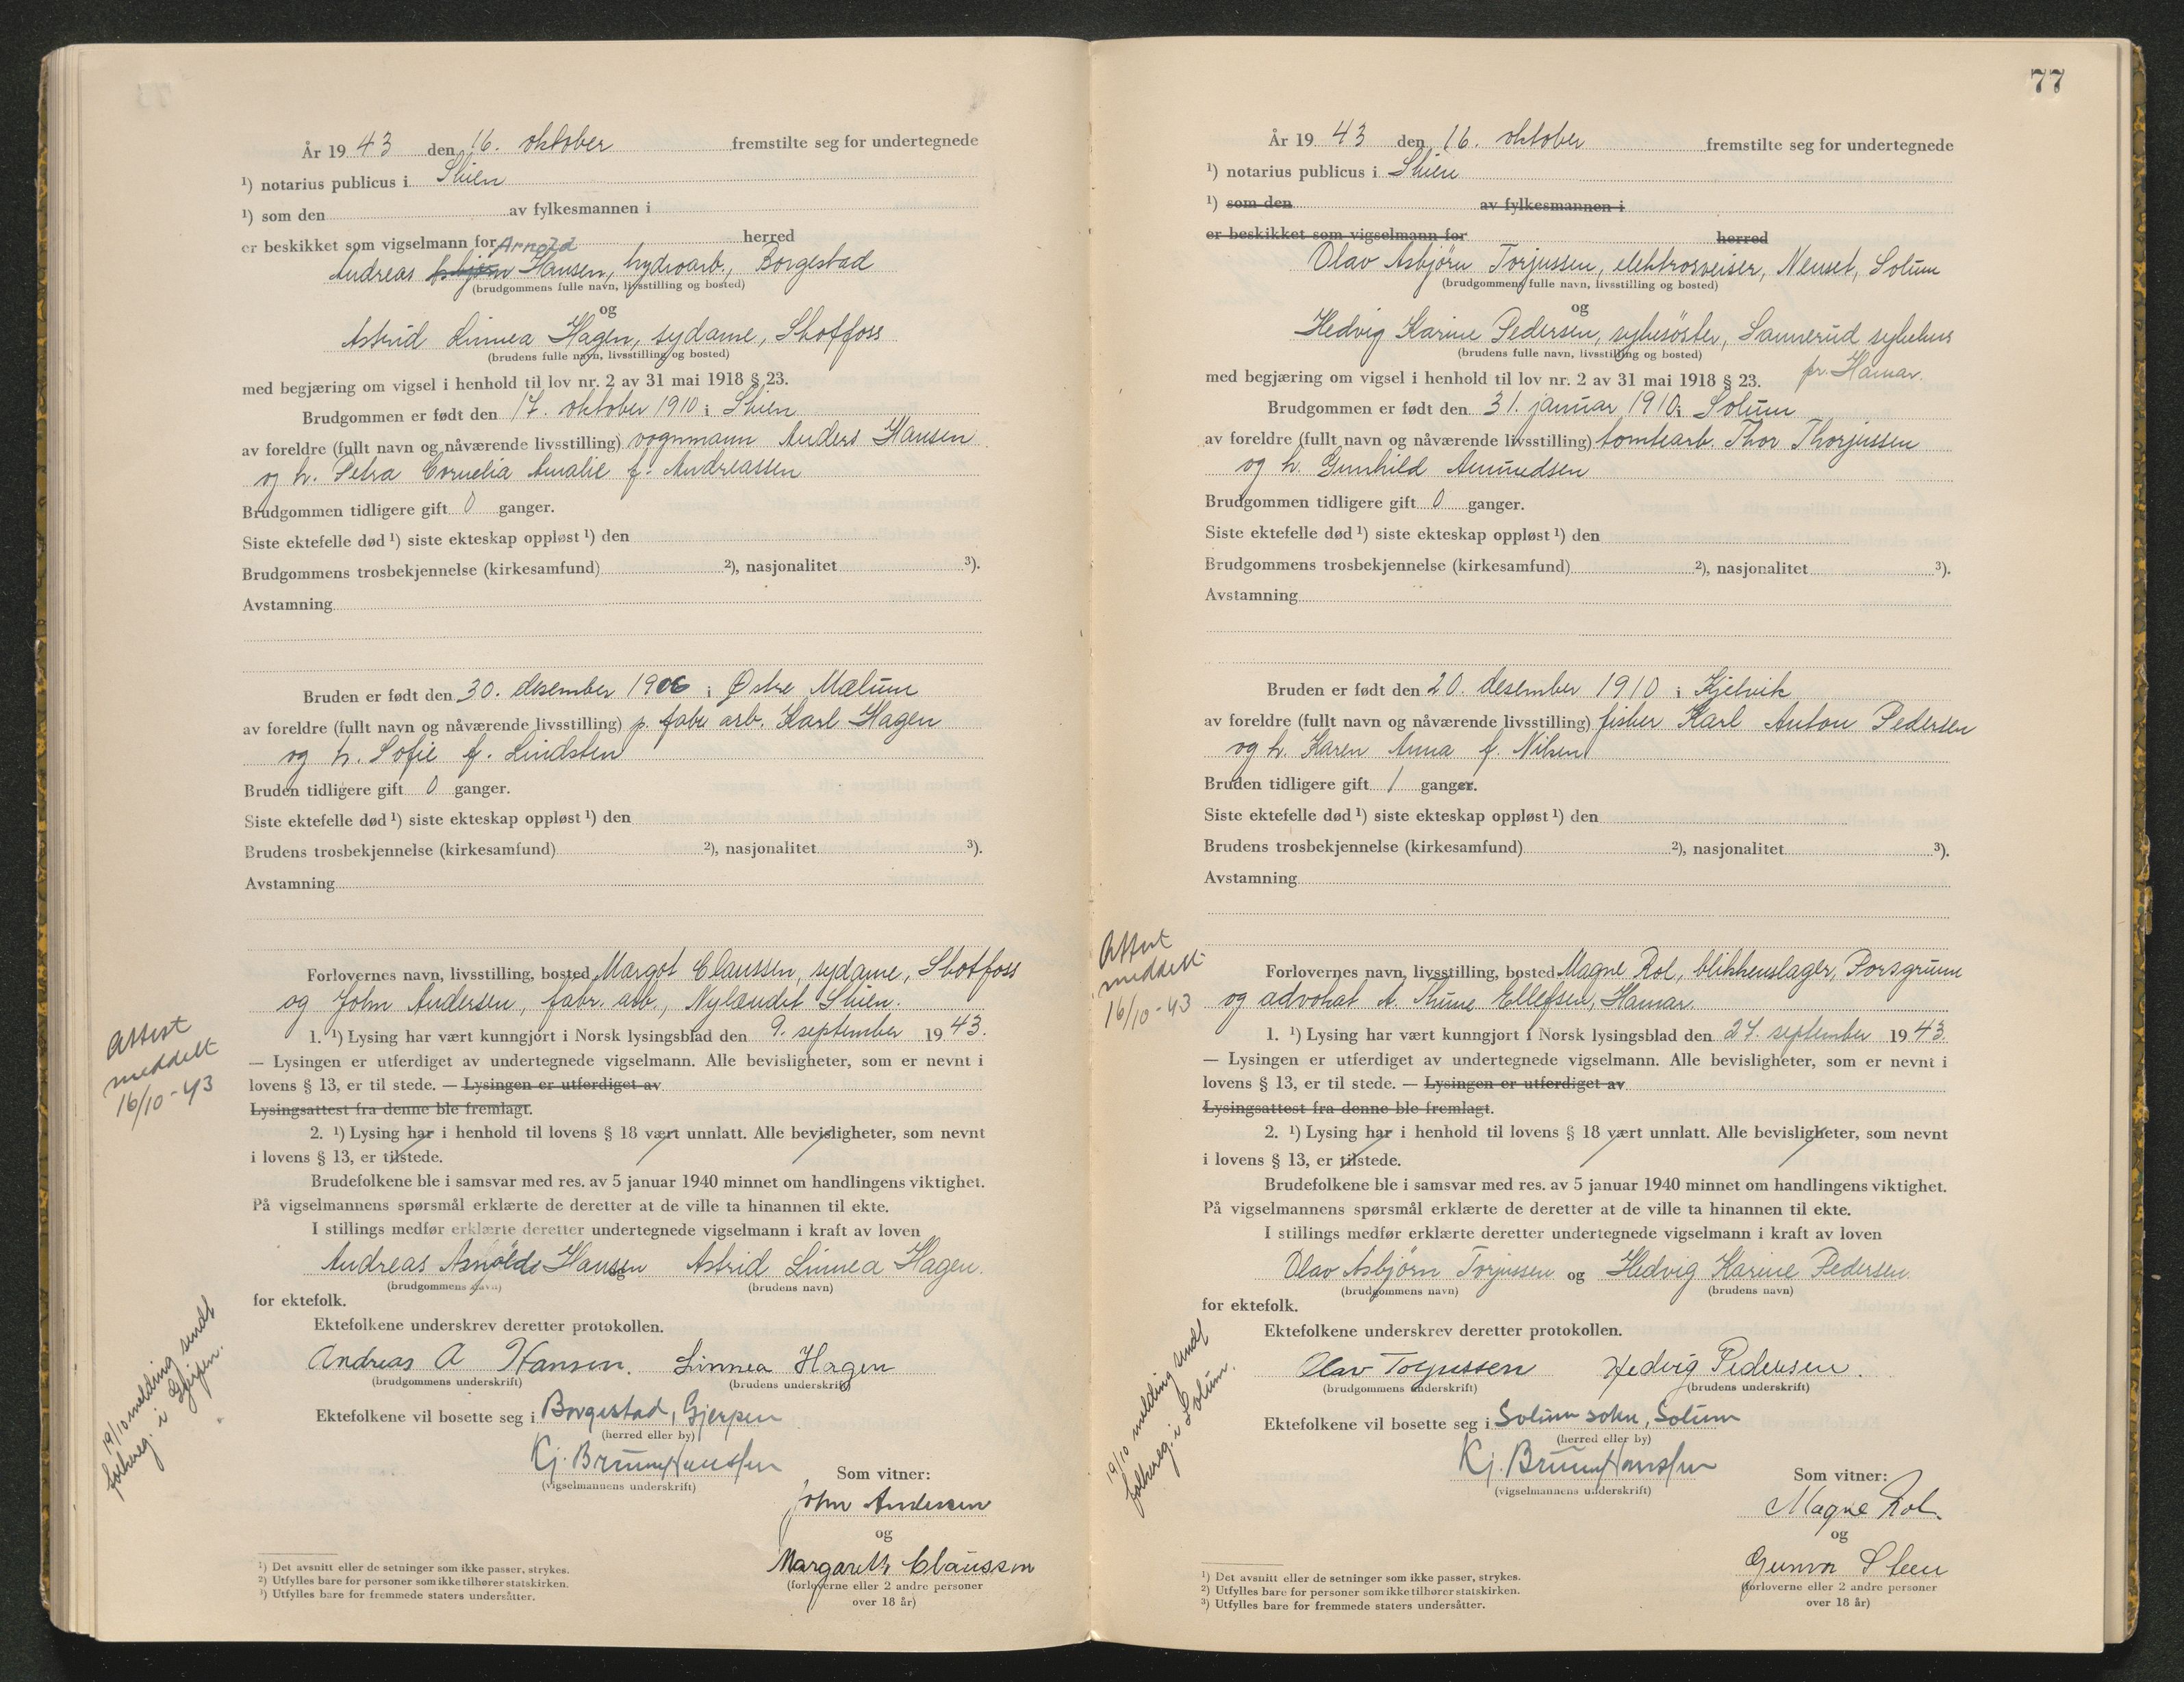 År 19 43 den 16. oktober fremstilte seg for undertegnede
¹) notarius publicus i Skien
¹) som den av fylkesmannen i
er beskikket som vigselmann for herred
Arnold
Andreas Asbjørn Hansen, hydroarb., Borgestad
(brudgommens fulle navn, livsstilling og bosted)
og
Astrid Linnea Hagen, sydame, Skotfoss
(brudens fulle navn, livsstilling og bosted)
med begjæring om vigsel i henhold til lov nr. 2 av 31 mai 1918 § 23.
Brudgommen er født den 17. oktober 1910 i Skien
av foreldre (fullt navn og nåværende livsstilling) vognmann Anders Hansen
og h. Petra Cornelia Amalie f. Andreassen
Brudgommen tidligere gift 0 ganger.
Siste ektefelle død ¹) siste ekteskap oppløst ¹) den
Brudgommens trosbekjennelse (kirkesamfund) ²), nasjonalitet ³).
Avstamning
Bruden er født den 30. desember 1906 i Østre Mælum
av foreldre (fullt navn og nåværende livsstilling) p. fabr arb. Karl Hagen
og h. Sofie f. Lindsten
Bruden tidligere gift 0 ganger.
Siste ektefelle død ¹) siste ekteskap oppløst ¹) den
Brudens trosbekjennelse (kirkesamfund) ²), nasjonalitet ³).
Avstamning
Forlovernes navn, livsstilling, bosted Margot Claussen, sydame, Skotfoss
og John Andersen, fabr. arb., Nylændet Skien.
1. ¹) Lysing har vært kunngjort i Norsk lysingsblad den 9. september 19 43.
— Lysingen er utferdiget av undertegnede vigselmann. Alle bevisligheter, som er nevnt i
lovens § 13, er til stede. — Lysingen er utferdiget av
Lysingsattest fra denne ble fremlagt.
2. ¹) Lysing har i henhold til lovens § 18 vært unnlatt. Alle bevisligheter, som nevnt
i lovens § 13, er tilstede.
Brudefolkene ble i samsvar med res. av 5 januar 1940 minnet om handlingens viktighet.
På vigselmannens spørsmål erklærte de deretter at de ville ta hinannen til ekte.
I stillings medfør erklærte deretter undertegnede vigselmann i kraft av loven
Andreas Arnold Hansen og Astrid Linnea Hagen.
(brudgommens navn) (brudens navn)
for ektefolk.
Ektefolkene underskrev deretter protokollen.
Andreas A Hansen. Linnea Hagen
(brudgommens underskrift) (brudens underskrift)
Ektefolkene vil bosette seg i Borgestad, Gjerpen
(herred eller by)
Kj. Bruun Hanssen
(vigselmannens underskrift)
Som vitner:
John Andersen
og
Margareth Claussen
(forloverne eller 2 andre personer
over 18 år)
¹) Det avsnitt eller de setninger som ikke passer, strykes.
²) Utfylles bare for personer som ikke tilhører statskirken.
³) Utfylles bare for fremmede staters undersåtter.
Attest
meddelt
16/10-43
19/10 melding sendt
folkereg. i Gjerpen.
77
År 19 43 den 16. oktober fremstilte seg for undertegnede
¹) notarius publicus i Skien
¹) som den av fylkesmannen i
er beskikket som vigselmann for herred
Olav Asbjørn Torjussen, elektrosveiser, Nenset, Solum
(brudgommens fulle navn, livsstilling og bosted)
og
Hedvig Karine Pedersen, sykesøster, Sannerud sykehus
(brudens fulle navn, livsstilling og bosted)
pr. Hamar.
med begjæring om vigsel i henhold til lov nr. 2 av 31 mai 1918 § 23.
Brudgommen er født den 31. januar 1910 i Solum
av foreldre (fullt navn og nåværende livsstilling) tomtearb. Thor Thorjussen
og h. Gunhild Amundsen
Brudgommen tidligere gift 0 ganger.
Siste ektefelle død ¹) siste ekteskap oppløst ¹) den
Brudgommens trosbekjennelse (kirkesamfund) ²), nasjonalitet ³).
Avstamning
Bruden er født den 20. desember 1910 i Kjelvik
av foreldre (fullt navn og nåværende livsstilling) fisker Karl Anton Pedersen
og h. Karen Anna f. Nilsen
Bruden tidligere gift 1 ganger.
Siste ektefelle død ¹) siste ekteskap oppløst ¹) den
Brudens trosbekjennelse (kirkesamfund) ²), nasjonalitet ³).
Avstamning
Forlovernes navn, livsstilling, bosted Magne Rol, blikkenslager, Porsgrunn
og advokat A. Thune Ellefsen, Hamar.
1. ¹) Lysing har vært kunngjort i Norsk lysingsblad den 24. september 19 43.
— Lysingen er utferdiget av undertegnede vigselmann. Alle bevisligheter, som er nevnt i
lovens § 13, er til stede. — Lysingen er utferdiget av
Lysingsattest fra denne ble fremlagt.
2. ¹) Lysing har i henhold til lovens § 18 vært unnlatt. Alle bevisligheter, som nevnt
i lovens § 13, er tilstede.
Brudefolkene ble i samsvar med res. av 5 januar 1940 minnet om handlingens viktighet.
På vigselmannens spørsmål erklærte de deretter at de ville ta hinannen til ekte.
I stillings medfør erklærte deretter undertegnede vigselmann i kraft av loven
Olav Asbjørn Torjussen og Hedvig Karine Pedersen
(brudgommens navn) (brudens navn)
for ektefolk.
Ektefolkene underskrev deretter protokollen.
Olav Torjussen Hedvig Pedersen.
(brudgommens underskrift) (brudens underskrift)
Ektefolkene vil bosette seg i Solum sokn, Solum
(herred eller by)
Kj. Bruun Hanssen
(vigselmannens underskrift)
Som vitner:
Magne Rol.
og
Gunvor Steen
(forloverne eller 2 andre personer
over 18 år)
¹) Det avsnitt eller de setninger som ikke passer, strykes.
²) Utfylles bare for personer som ikke tilhører statskirken.
³) Utfylles bare for fremmede staters undersåtter.
Attest
meddelt
16/10-43
19/10 melding sendt
folkereg. i Solum.